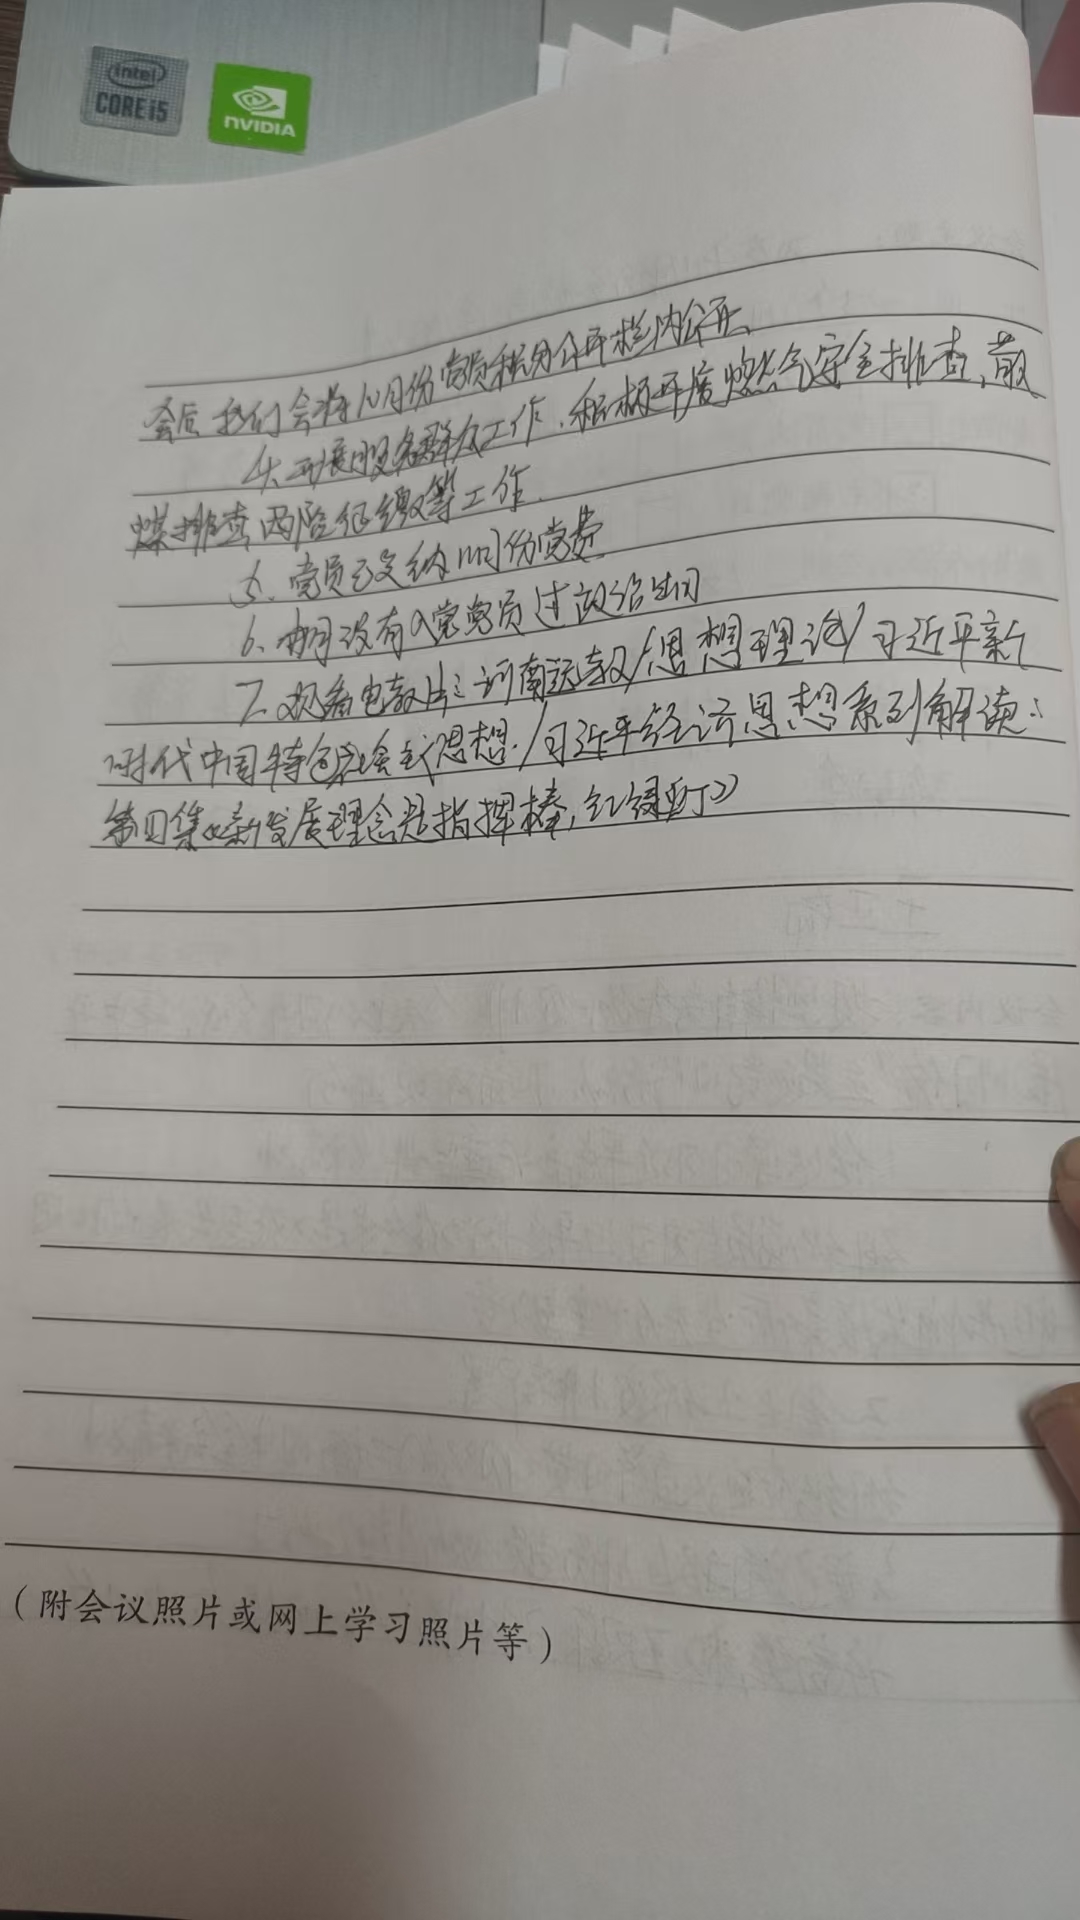 intel
CORE i5
NVIDIA
会后我们会将10月份党员积分公开栏内公开、
4、开展服务群众工作，积极开展燃气安全排查、散
煤排查，两险征缴等工作.
5、党员已交纳11月份党费
6、本月没有入党党员过政治生日
7、观看电教片：河南远教/思想理论/习近平新
时代中国特色社会主义思想./习近平经济思想系列解读：
第四集《新发展理念是指挥棒，红绿灯》
（附会议照片或网上学习照片等）